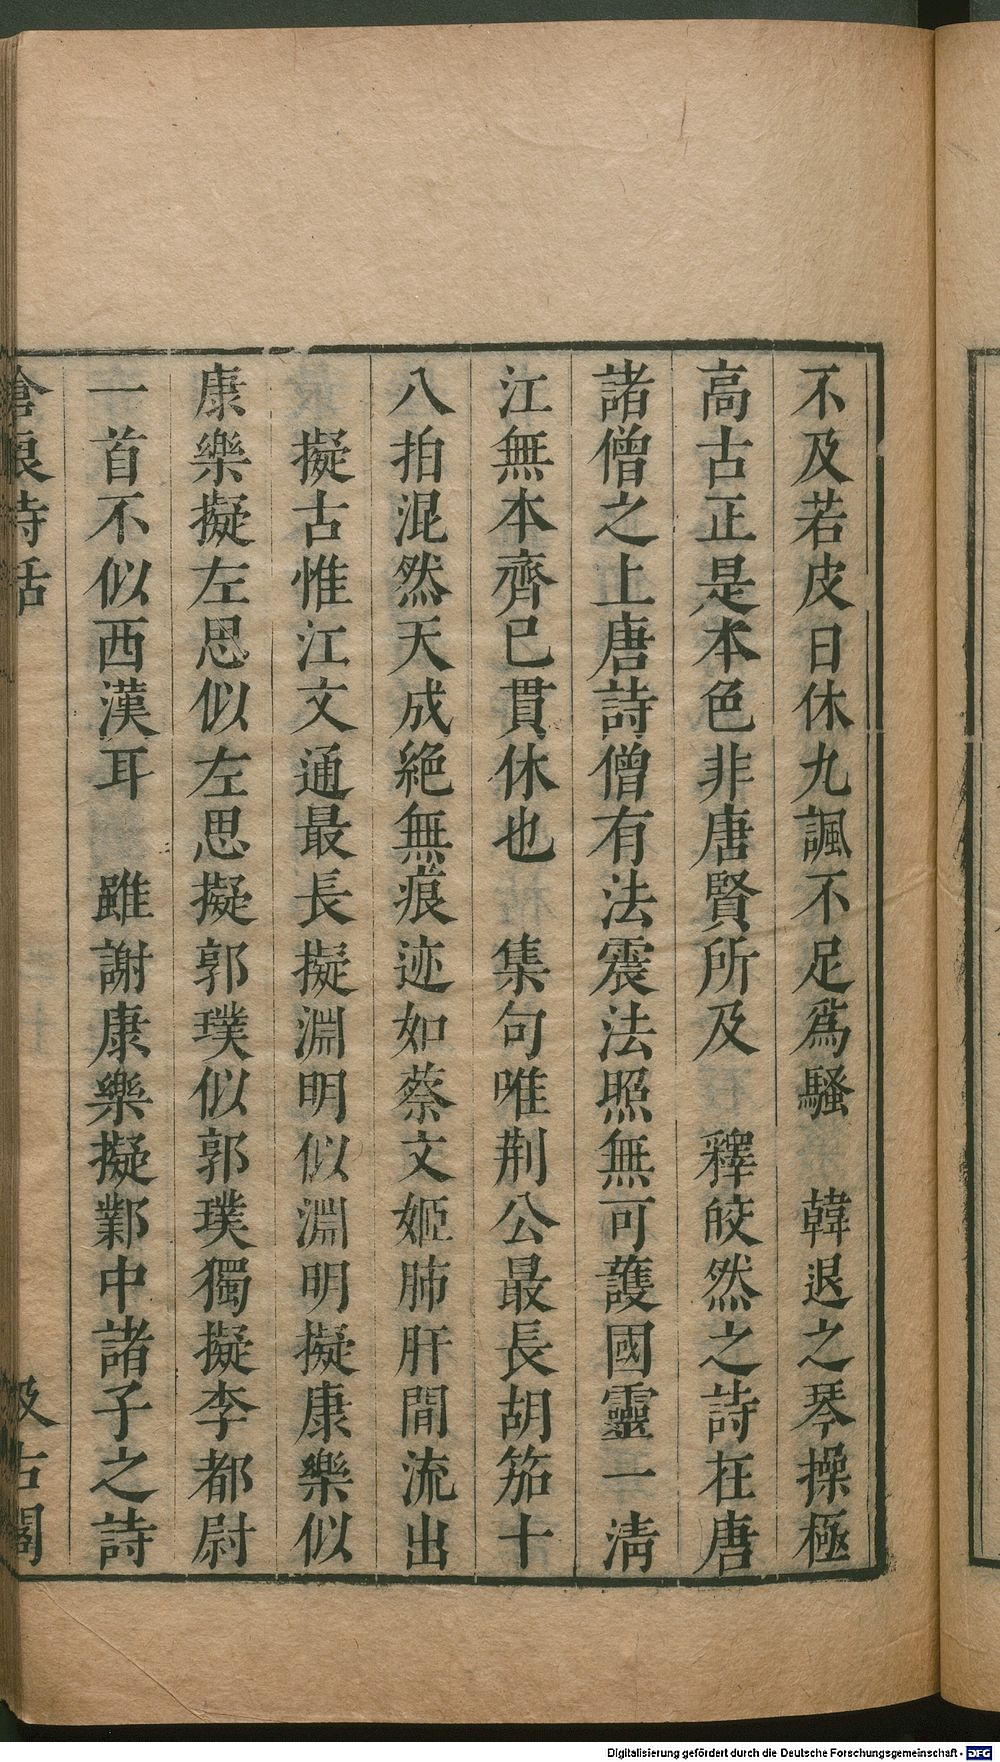 不及若皮日休九諷不足爲騷　韓退之琴操極
高古正是本色非唐賢所及　釋皎然之詩在唐
諸僧之上唐詩僧有法震法照無可護國靈一清
江無本齊已貫休也　集句唯荆公最長胡笳十
八拍混然天成絶無痕迹如蔡文姬肺肝間流出
擬古惟江文通最長擬淵明似淵明擬康樂似
康樂擬左思似左思擬郭璞似郭璞獨擬李都尉
一首不似西漢耳　雖謝康樂擬鄴中諸子之詩
滄浪詩話　汲古閣
Digitalisierung gefördert durch die Deutsche Forschungsgemeinschaft - DFG